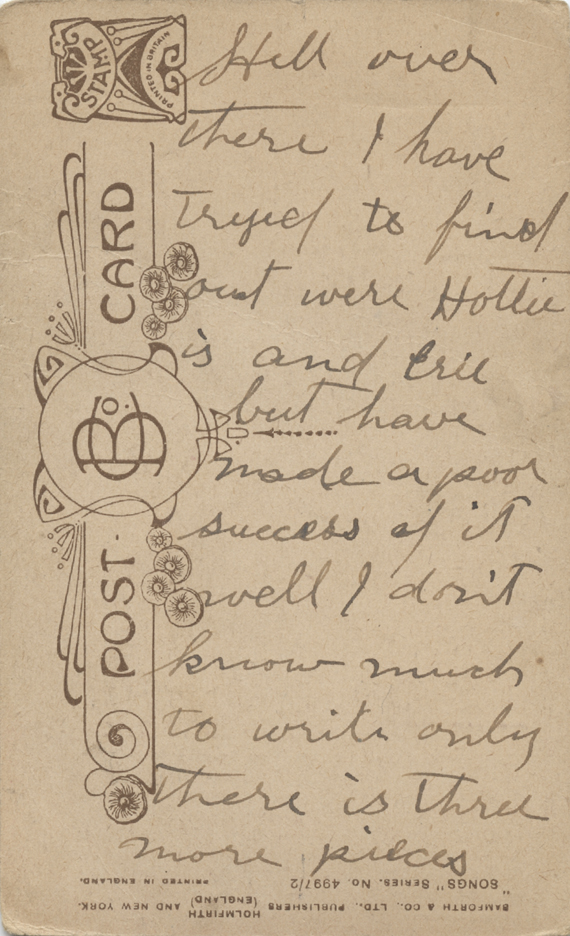 STAMP
PRINTED IN BRITAIN
Hill over
there I have
tryed to find
out were Hottie
is and Erie
but have
made a poor
success of it
well I don't
know much
to write only
There is three
more pieces
POST CARD
B & Co.
BAMFORTH & CO., LTD., PUBLISHERS HOLMFIRTH (ENGLAND) AND NEW YORK.
"SONGS" SERIES. No. 4997/2
PRINTED IN ENGLAND.